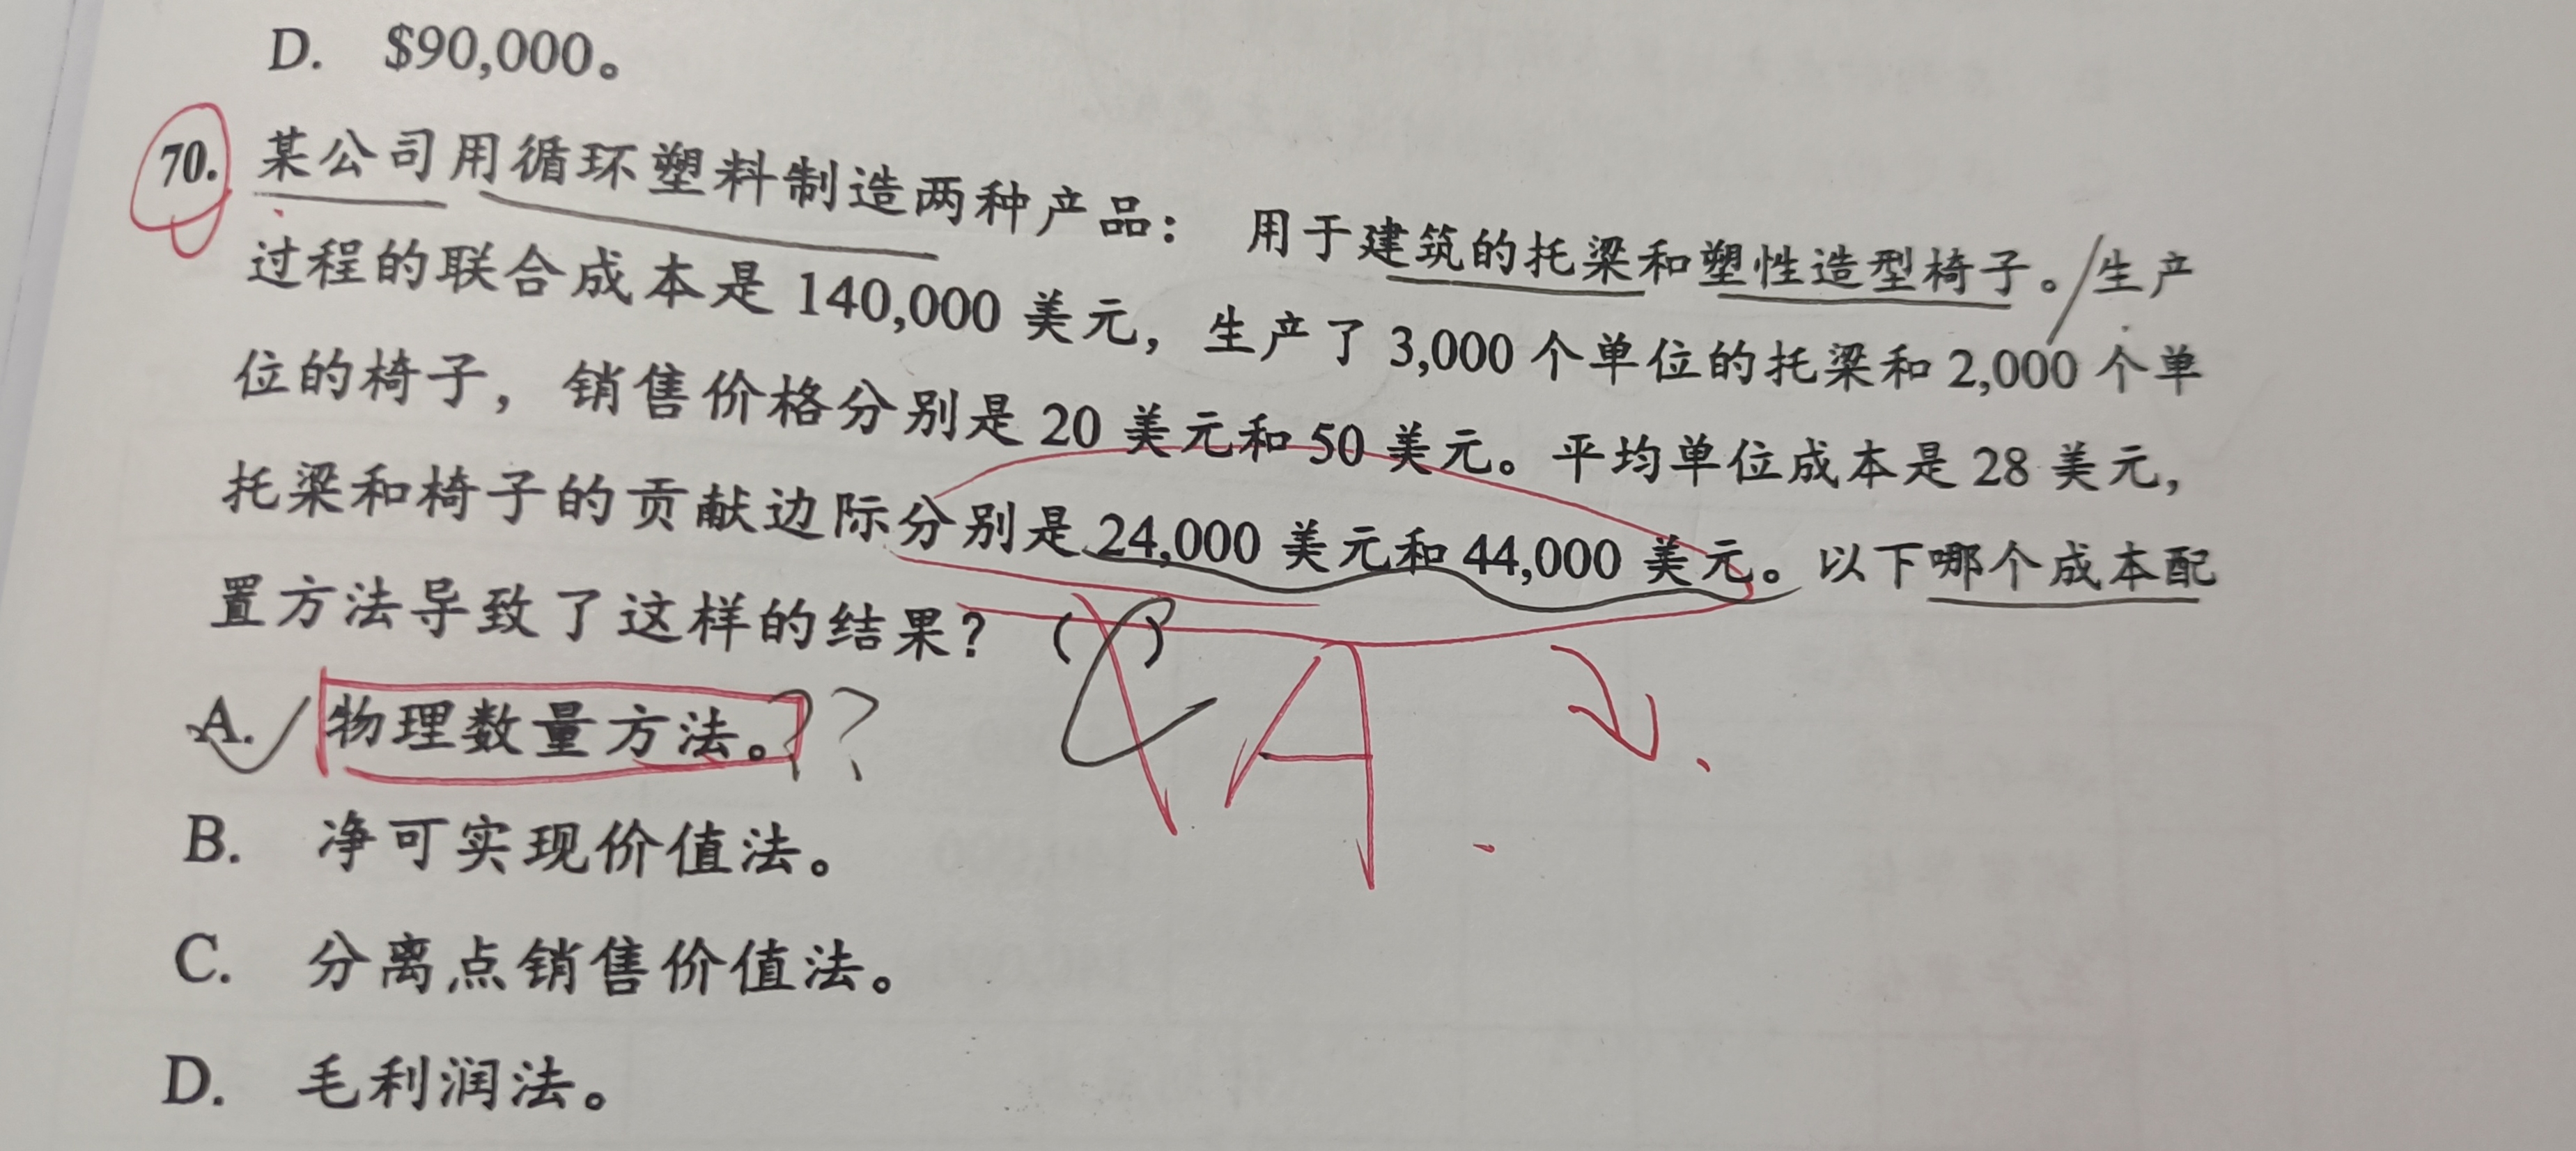 D. $90,000。
70. 某公司用循环塑料制造两种产品： 用于建筑的托梁和塑性造型椅子。/生产
过程的联合成本是 140,000 美元，生产了 3,000 个单位的托梁和 2,000 个单
位的椅子，销售价格分别是 20 美元和 50 美元。平均单位成本是 28 美元，
托梁和椅子的贡献边际分别是 24,000 美元和 44,000 美元。以下哪个成本配
置方法导致了这样的结果？（C） A
A. 物理数量方法。??
B. 净可实现价值法。
C. 分离点销售价值法。
D. 毛利润法。